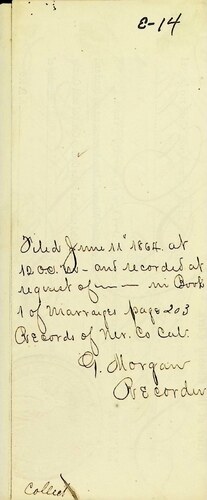 E-14
Filed June 11" 1864 at
12 O.C. M - and recorded at
request of — — in Book
1 of Marrages page 203
Records of Nev. Co Cal.
G. Morgan
Recorder
Collect